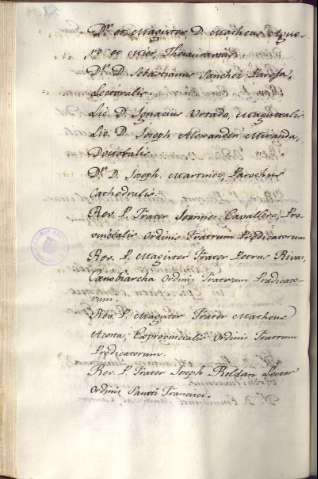 Dr. et Magister D. Matheus Ague-
D. D. Sebastianus Sanchez Pareja,
Lectoralis.
Lic. D. Ignacius Vrtado, Magistralis
Lic. D. Joseph Alexander Miranda,
Doctoralis.
Dr. D. Joseph Martinez, Parochus
Cathedralis.
Rev. P. Frater Joannes Cavallero, Pro-
vincialis Ordinis Fratrum Prędicatorum
Rev. P. Magister Frater Petrus Rivas,
Cœnobiarcha Ordinis Fratrum Prædicato-
rum
Rev. P. Magister Frater Matheus
Acosta, Exprovincialis Ordinis Fratrum
Prędicatorum.
Rev. P. Frater Joseph Roldan Lector
Ordinis Sancti Francisci.